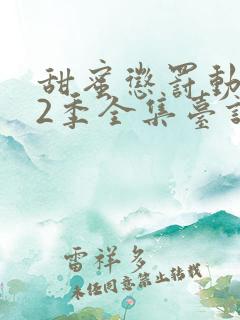 甜蜜懲罰動
2季全集臺
雷祥多
未经同意禁止转载